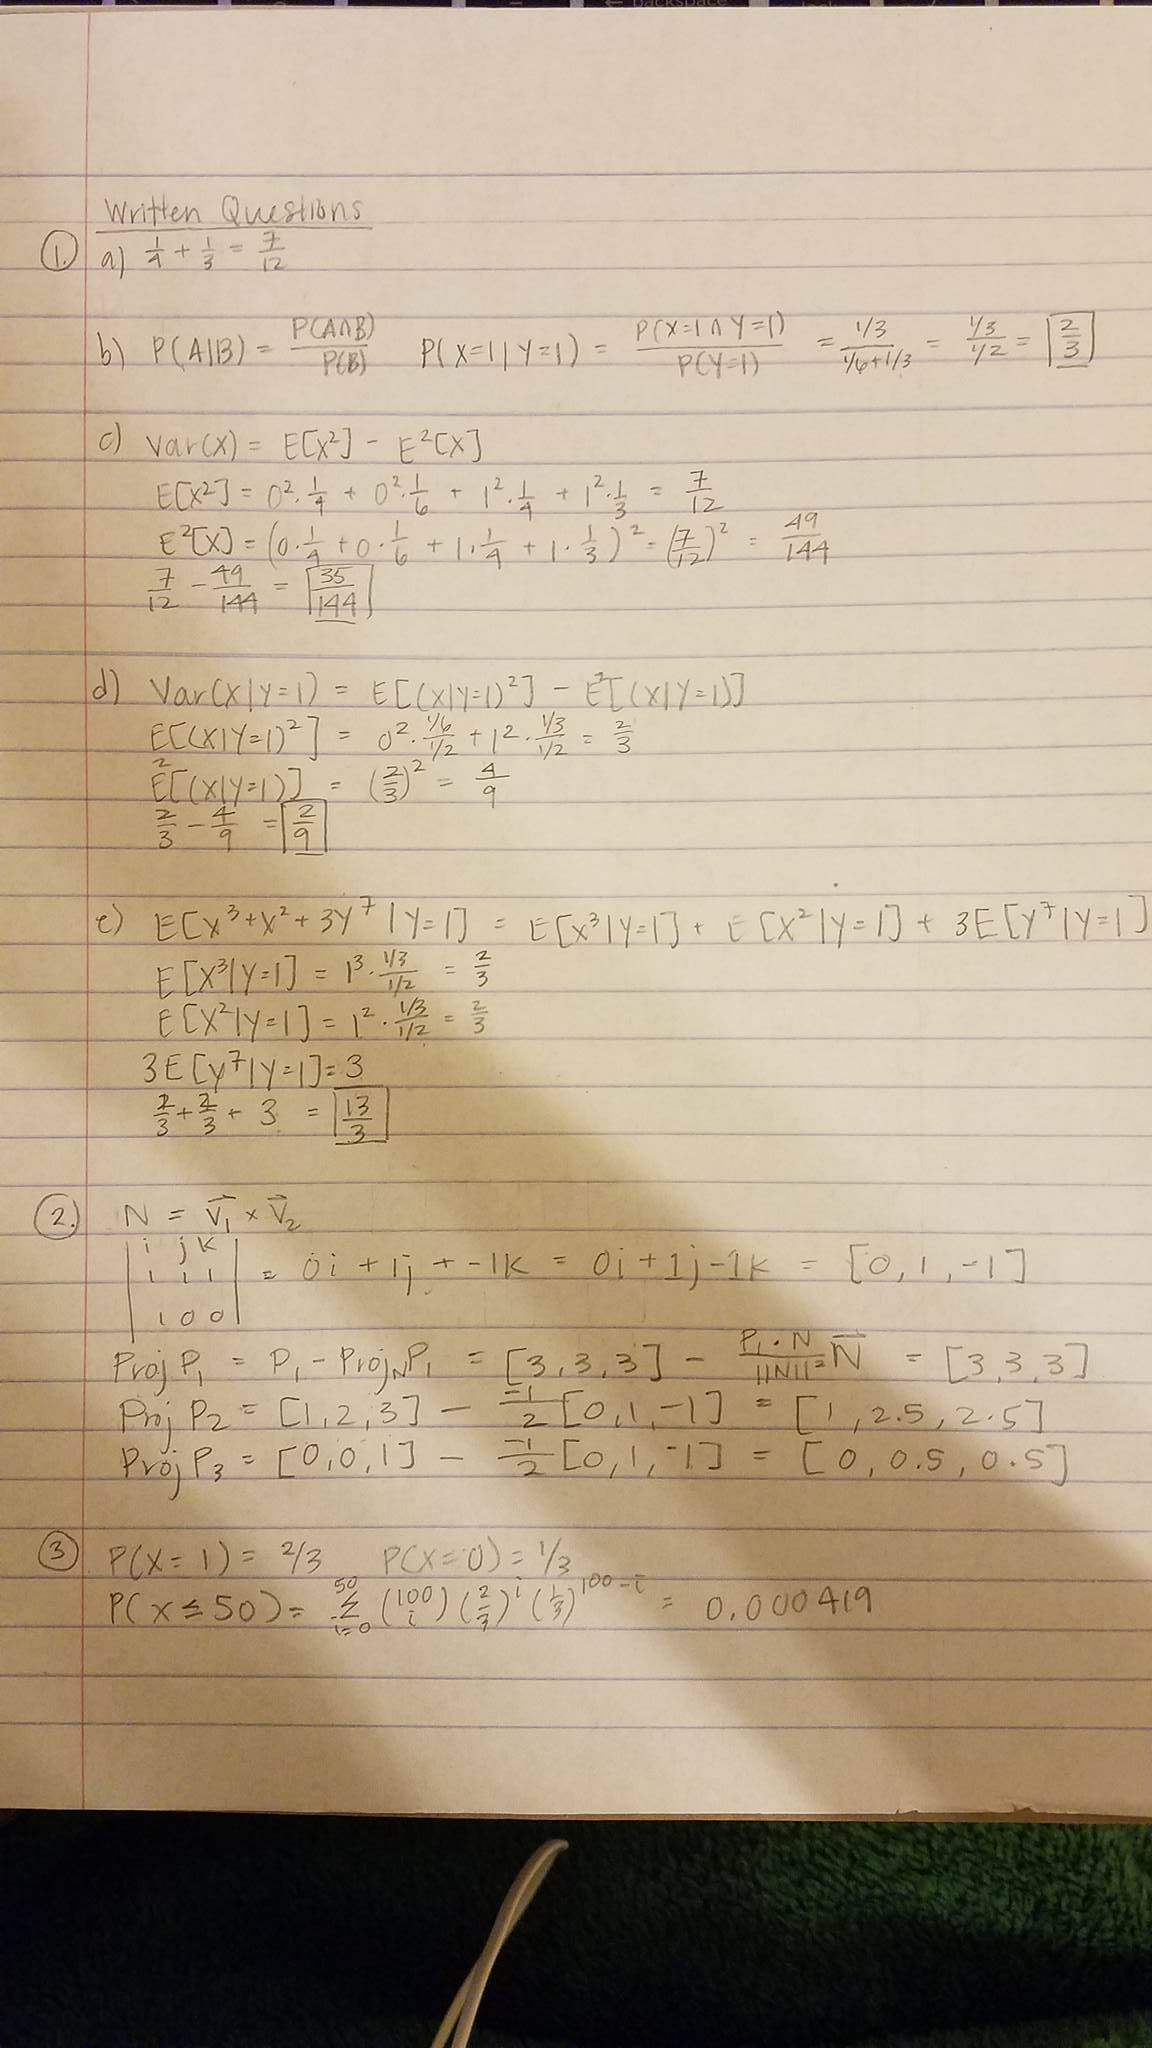 ← backspace
Written Questions
1. a) 1/4 + 1/3 = 7/12
b) P(A|B) = P(A∩B)/P(B) P(X=1|Y=1) = P(X=1∧Y=1)/P(Y=1) = 1/3/(1/6+1/3) = 1/3/1/2 = 2/3
c) Var(X) = E[X²] - E²[X]
E[X²] = 0²·1/4 + 0²·1/6 + 1²·1/4 + 1²·1/3 = 7/12
E²[X] = (0·1/4 + 0·1/6 + 1·1/4 + 1·1/3)² = (7/12)² = 49/144
7/12 - 49/144 = 35/144
d) Var(X|Y=1) = E[(X|Y=1)²] - E²[(X|Y=1)]
E[(X|Y=1)²] = 0²·1/6/1/2 + 1²·1/3/1/2 = 2/3
E²[(X|Y=1)] = (2/3)² = 4/9
2/3 - 4/9 = 2/9
e) E[X³+X²+3Y⁷|Y=1] = E[X³|Y=1] + E[X²|Y=1] + 3E[Y⁷|Y=1]
E[X³|Y=1] = 1³·1/3/1/2 = 2/3
E[X²|Y=1] = 1²·1/3/1/2 = 2/3
3E[Y⁷|Y=1] = 3
2/3 + 2/3 + 3 = 13/3
2. N = V₁ × V₂
|i j k|
|1 1 1| = 0i + 1j + -1k = 0i + 1j - 1k = [0, 1, -1]
|1 0 0|
Proj P₁ = P₁ - Proj_N P₁ = [3, 3, 3] - P₁·N/||N||² N = [3, 3, 3]
Proj P₂ = [1, 2, 3] - -1/2 [0, 1, -1] = [1, 2.5, 2.5]
Proj P₃ = [0, 0, 1] - -1/2 [0, 1, -1] = [0, 0.5, 0.5]
3 P(X=1) = 2/3 P(X=0) = 1/3
P(X≤50) = Σ_{i=0}^{50} (100 i) (2/3)^i (1/3)^{100-i} = 0.000419